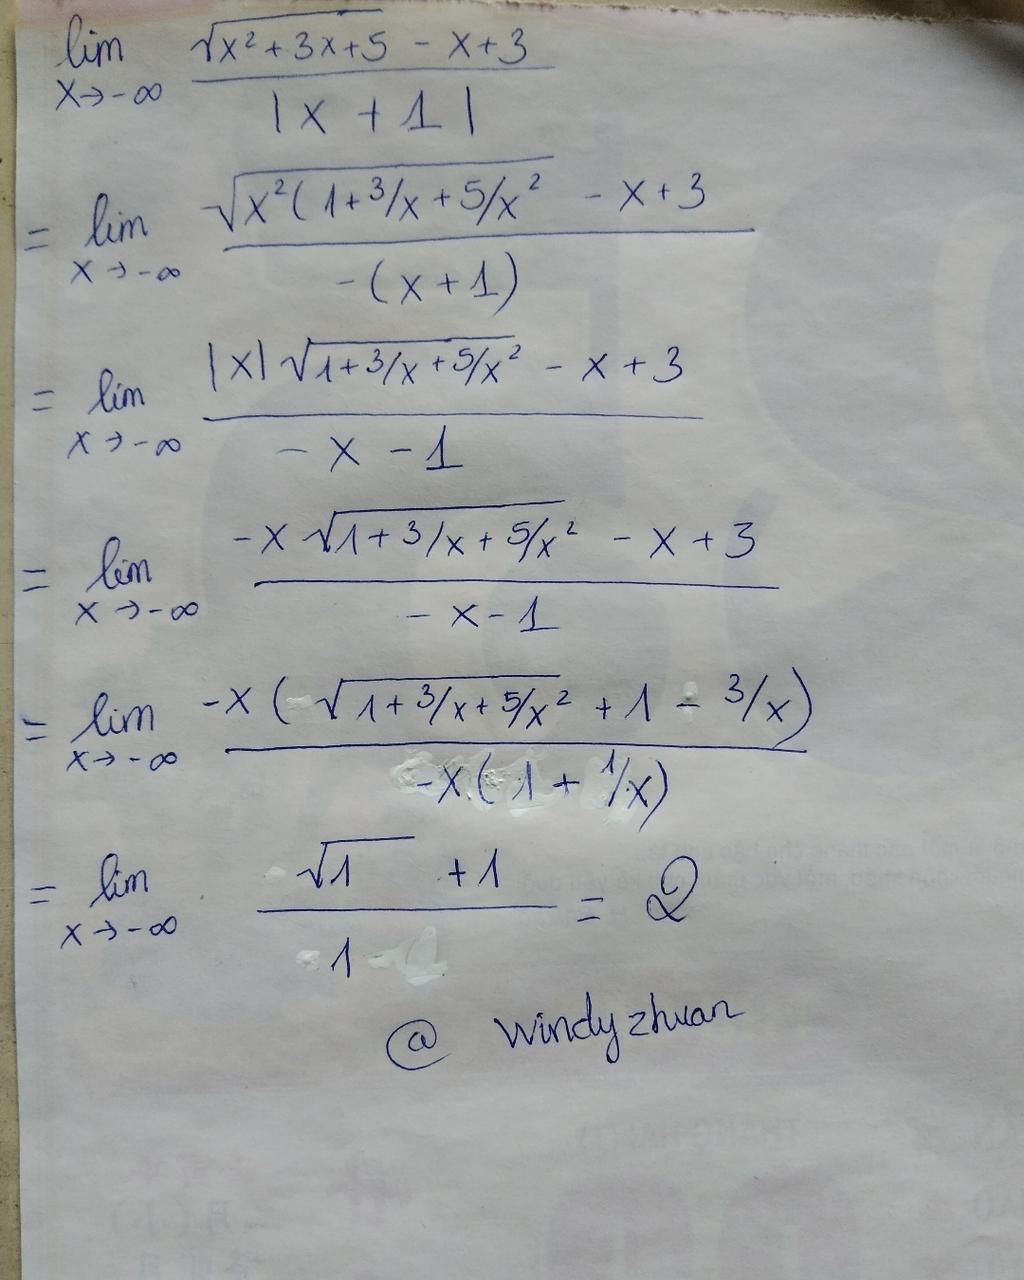 lim x→-∞ √x²+3x+5 - x+3 / |x+1|
= lim x→-∞ √x²(1+3/x+5/x² - x+3 / -(x+1)
= lim x→-∞ |x|√1+3/x+5/x² - x+3 / -x-1
= lim x→-∞ -x√1+3/x+5/x² - x+3 / -x-1
= lim x→-∞ -x(√1+3/x+5/x² +1 - 3/x) / -x(1+1/x)
= lim x→-∞ √1 +1 / 1 = 2
@ windyzhuan